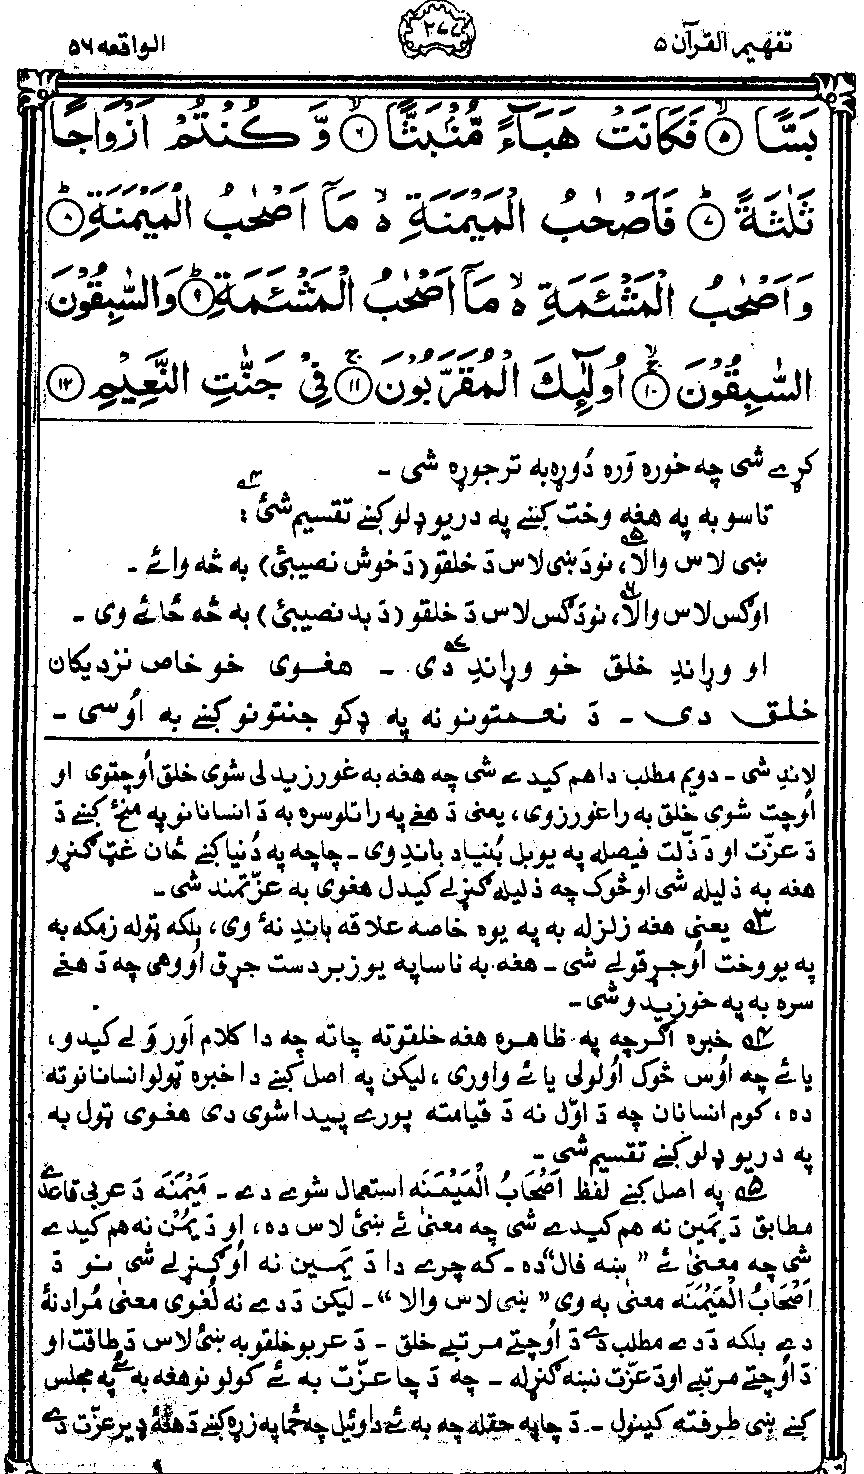 تفهیم القرآن ۵
۲۷۷
الواقعه ۵۶
بَسًّا ۝۵ فَكَانَتْ هَبَآءً مُّنْۢبَثًّا ۝۶ وَّ كُنْتُمْ اَزْوَاجًا
ثَلٰثَةً ۝۷ فَاَصْحٰبُ الْمَيْمَنَةِ ۙ۬ مَاۤ اَصْحٰبُ الْمَيْمَنَةِ ۝۸
وَ اَصْحٰبُ الْمَشْـَٔمَةِ ۙ۬ مَاۤ اَصْحٰبُ الْمَشْـَٔمَةِ ۝۹ وَالسّٰبِقُوْنَ
السّٰبِقُوْنَ ۝۱۰ اُولٰٓئِكَ الْمُقَرَّبُوْنَ ۝۱۱ فِیْ جَنّٰتِ النَّعِيْمِ ۝۱۲
کړے شی چه خوره وره دُوړه به ترجوړه شی ۔
تاسو به په هغه وخت کښے په دریو ډلو کښے تقسیم شئ ۴ :
ښی لاس والا ۵، نو د ښی لاس د خلقو (د خوش نصیبئ) به څه وائے ۔
او ګس لاس والا ۶، نو د ګس لاس د خلقو (د بد نصیبئ) به څه ځائے وی ۔
او وړاندِ خلق خو وړاندِ دی ۷ ۔ هغوی خو خاص نزدیکان
خلق دی ۔ د نعمتونو نه په ډکو جنتونو کښے به اُوسی ۔
لاندِ شی ۔ دویم مطلب دا هم کیدے شی چه هغه به غورزیدلی شوی خلق اُوچتوی او
اُوچت شوی خلق به راغورزوی، یعنی د هغے په راتلو سره به د انسانانو په منځ کښے د
د عزّت او د ذلّت فیصله په یو بل بُنیاد باندِ وی ۔ چا چه په دُنیا کښے ځان غټ ګنړو
هغه به ذلیله شی او څوک چه ذلیله ګنړلے کیدل هغوی به عزّتمند شی ۔
۳ یعنی هغه زلزله به په یوه خاصه علاقه باندِ نهٔ وی، بلکه ټوله زمکه به
په یو وخت اُوجړقولے شی ۔ هغه به ناسا په یو زبردست جړق اُووهی چه د هغے
سره به په خوزیدو شی ۔
۴ خبره اګرچه په ظاهره هغه خلقو ته چا ته چه دا کلام اورَولے کیدو،
یا ئے چه اوُس څوک اُولولی یا ئے واوری، لیکن په اصل کښے دا خبره ټولو انسانانو ته
ده، کوم انسانان چه د اوّل نه د قیامته پورے پیدا شوی دی هغوی ټول به
په دریو ډلو کښے تقسیم شی ۔
۵ په اصل کښے لفظ اَصْحَابُ الْمَيْمَنَه استعمال شوے دے ۔ مَيْمَنَه د عربی قاعدے
مطابق د یَمین نه هم کیدے شی چه معنیٰ ئے ښئ لاس ده، او د یُمْن نه هم کیدے
شی چه معنیٰ ئے "ښه فال" ده ۔ که چرے دا د یَمین نه اُوګنړلے شی نو د
اَصْحَابُ الْمَيْمَنَه معنیٰ به وی "ښی لاس والا" ۔ لیکن د دے نه لُغوی معنیٰ مُراد نهٔ
دے بلکه د دے مطلب دے د اُوچتے مرتبے خلق ۔ د عربو خلقو به ښئ لاس د طاقت او
د اُوچتے مرتبے او د عزّت نښه ګنړله ۔ چه د چا عزّت به ئے کولو نو هغه به ئے په مجلس
کښے ښی طرف ته کینول ۔ د چا په حقله چه به ئے دا وئیل چه ځما په زړه کښے د هغهٔ ډیر عزّت دے